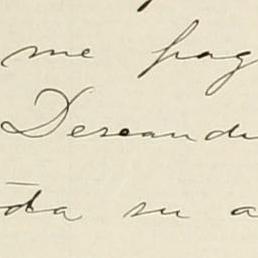 me pag
Deseandu
da su a